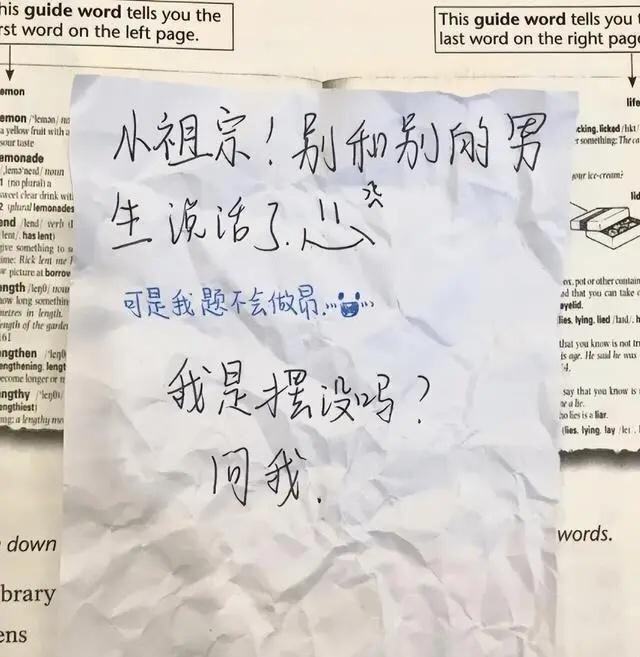 his guide word tells you the
rst word on the left page.
This guide word tells you t
last word on the right page
emon
emon /'lemən/ no
a yellow fruit with a
sour taste
emonade
/ˌlemə'neɪd/ noun
1 (no plural) a
sweet clear drink wit
2 (plural lemonades
end /lend/ verb (l
lent/, has lent)
give something to s
time: Rick lent me l
picture at borrow
ength /leŋθ/ noun
how long something
metres in length.
ength of the garde
161
engthen /'leŋθ
engthening, lengt
become longer or n
engthy /'leŋθi/
engthiest)
ng: a lengthy me
小祖宗！别和别的男
生说话了.
可是我题不会做昂...
我是摆没吗？
问我.
life
cking, licked /lɪkt/
r something: The ca
your ice-cream?
lid
ox, pot or other contain
ad that you can take
eyelid.
lies, lying, lied /laɪd/, h
that you know is not tr
is age. He said he was
4.
say that you know is
e a lie.
ho lies is a liar.
(lies, lying, lay /leɪ/,
down
words.
brary
ens